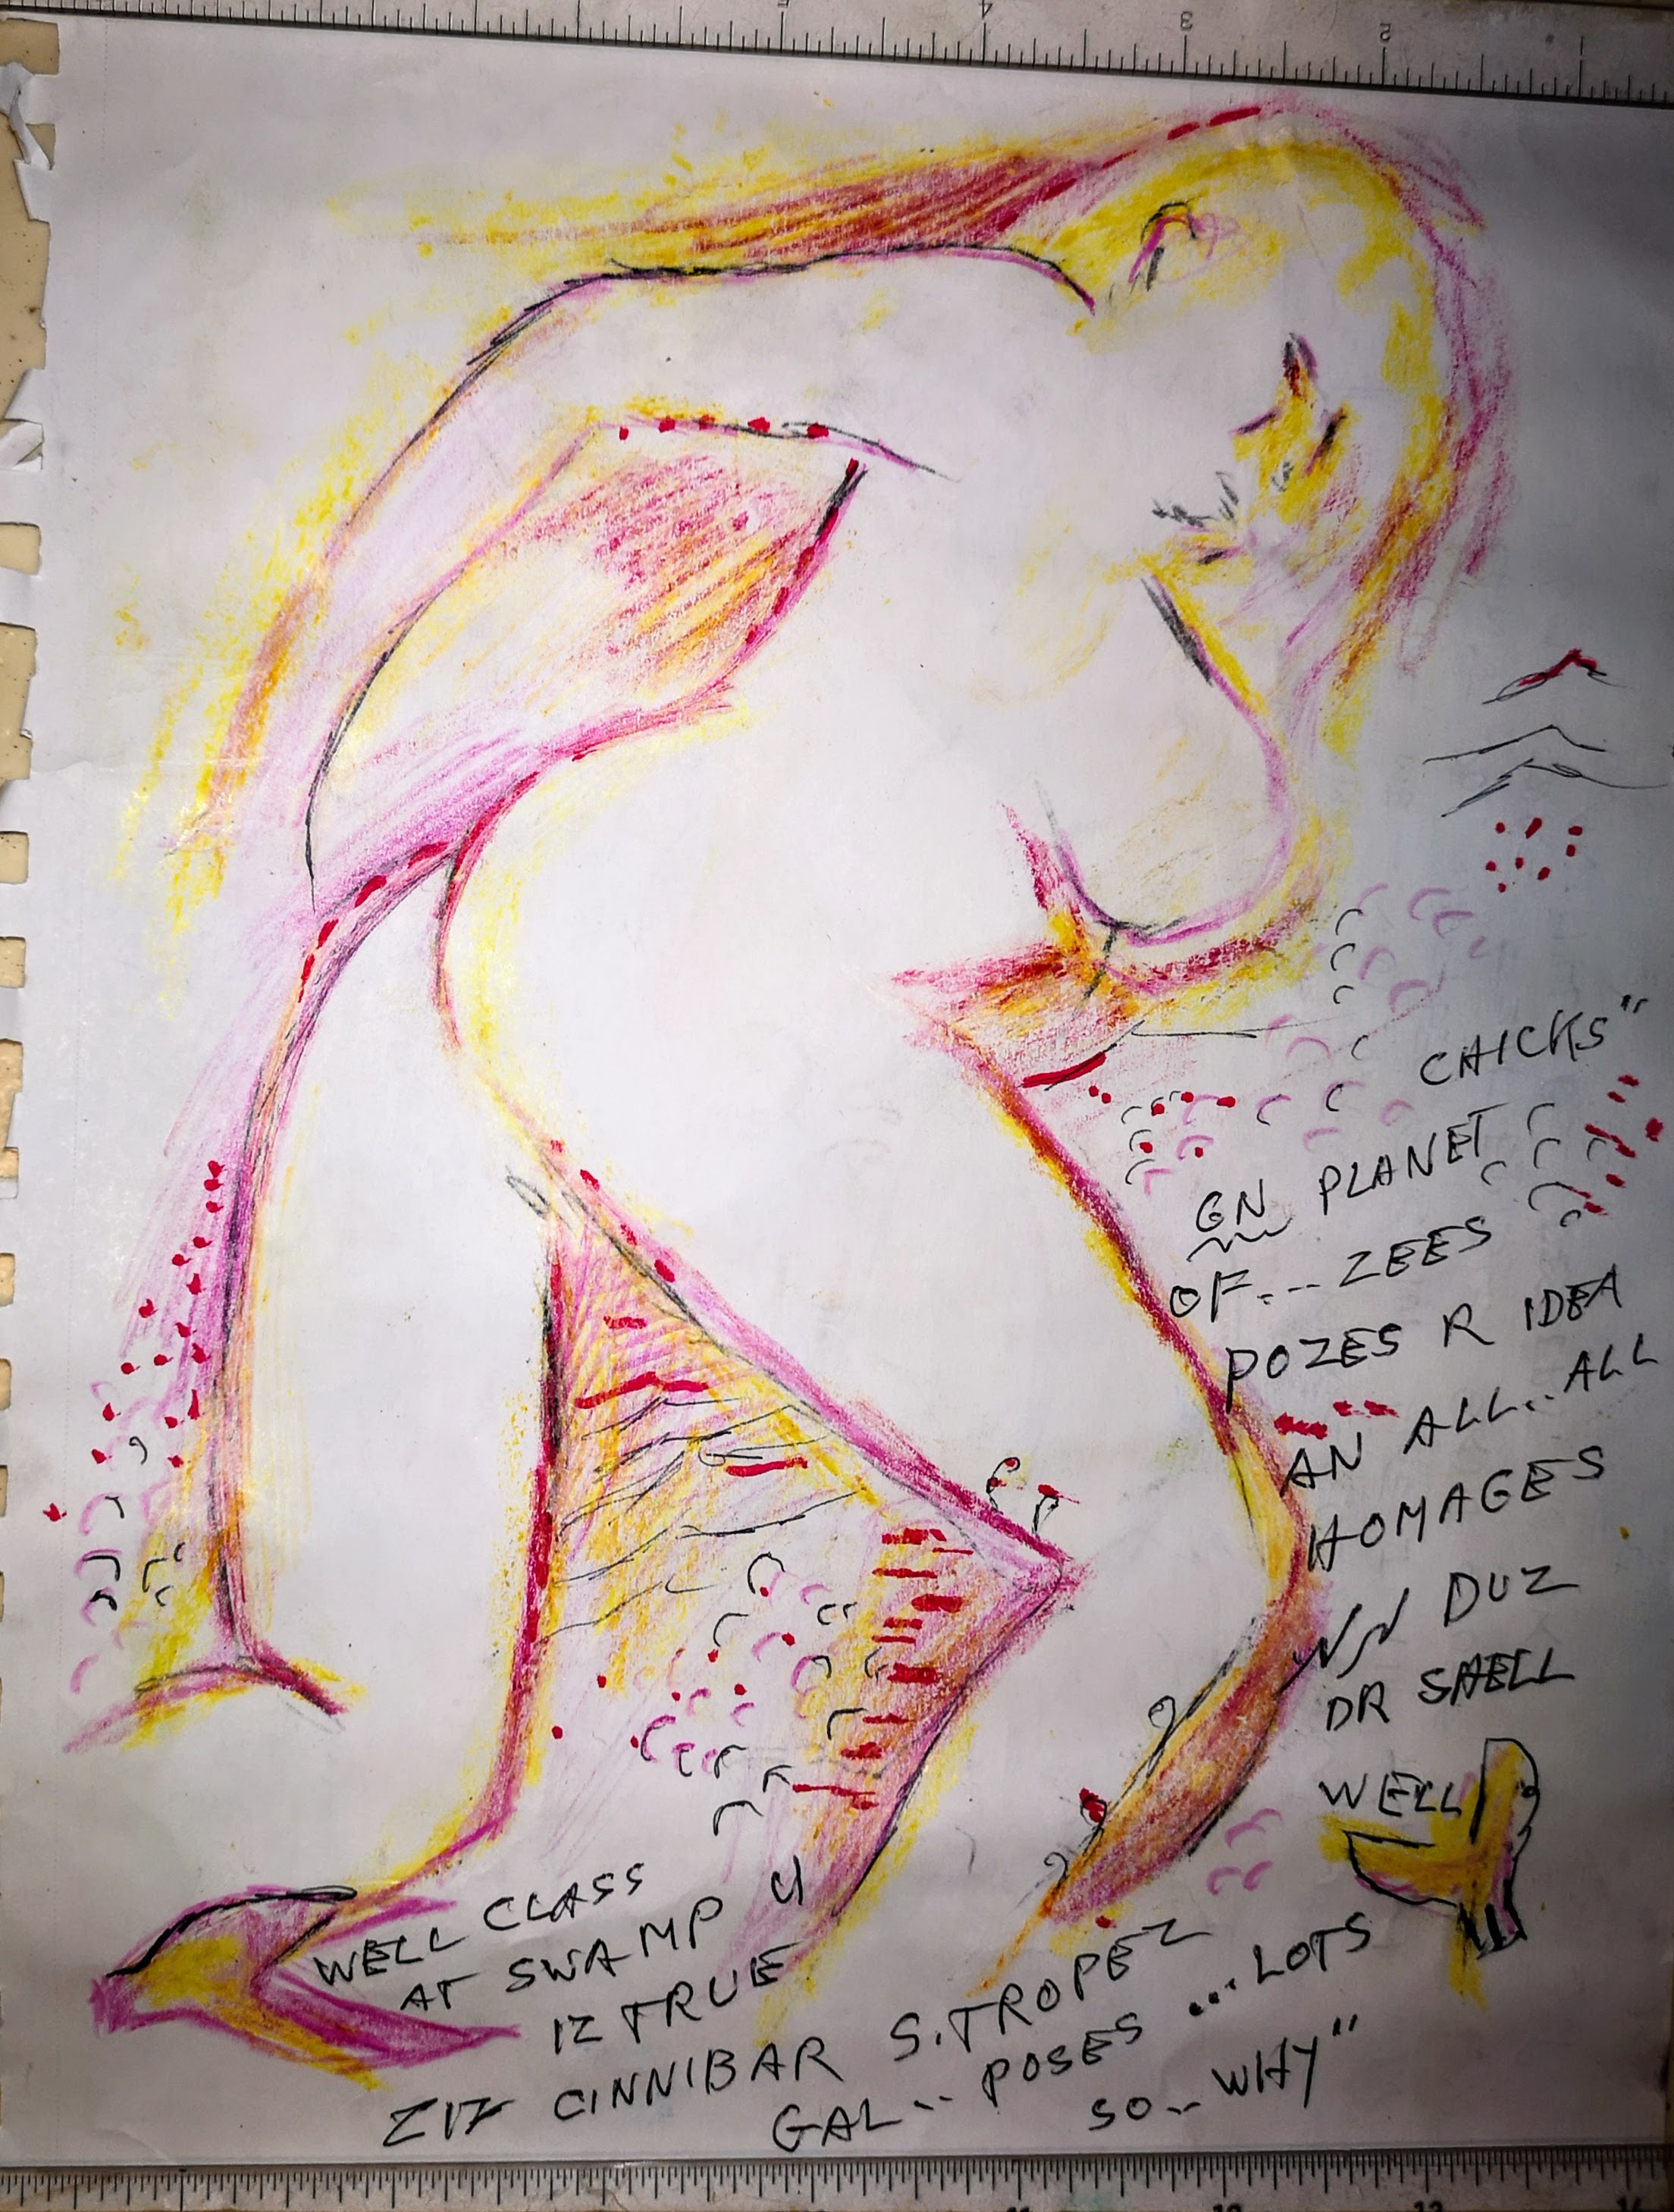 CHICKS"
ON PLANET
OF... ZEES
POZES R IDEA
AN ALL.. ALL
HOMAGES
DUZ
DR SHELL
WELL
WELL CLASS
AT SWAMP U
IZ TRUE
ZIZ CINNIBAR S.TROPEZ
GAL.. POSES ... LOTS
SO.. WHY"
5
4
3
2
1
11
12
13
14